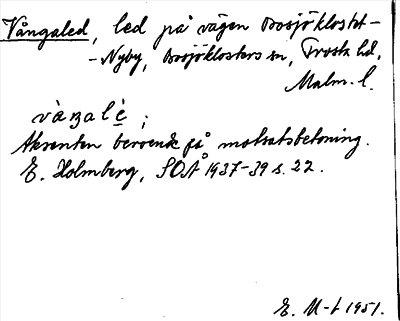 Vångaled, led på vägen Bosjökloster-
-Nyby, Bosjöklosters sn, Frosta hd,
Malm. l.
vàŋalè̱ ;
Akcenten beroende på motsatsbetoning.
E. Holmberg, SOÅ 1937-39 s. 22.
E. M-t 1951.